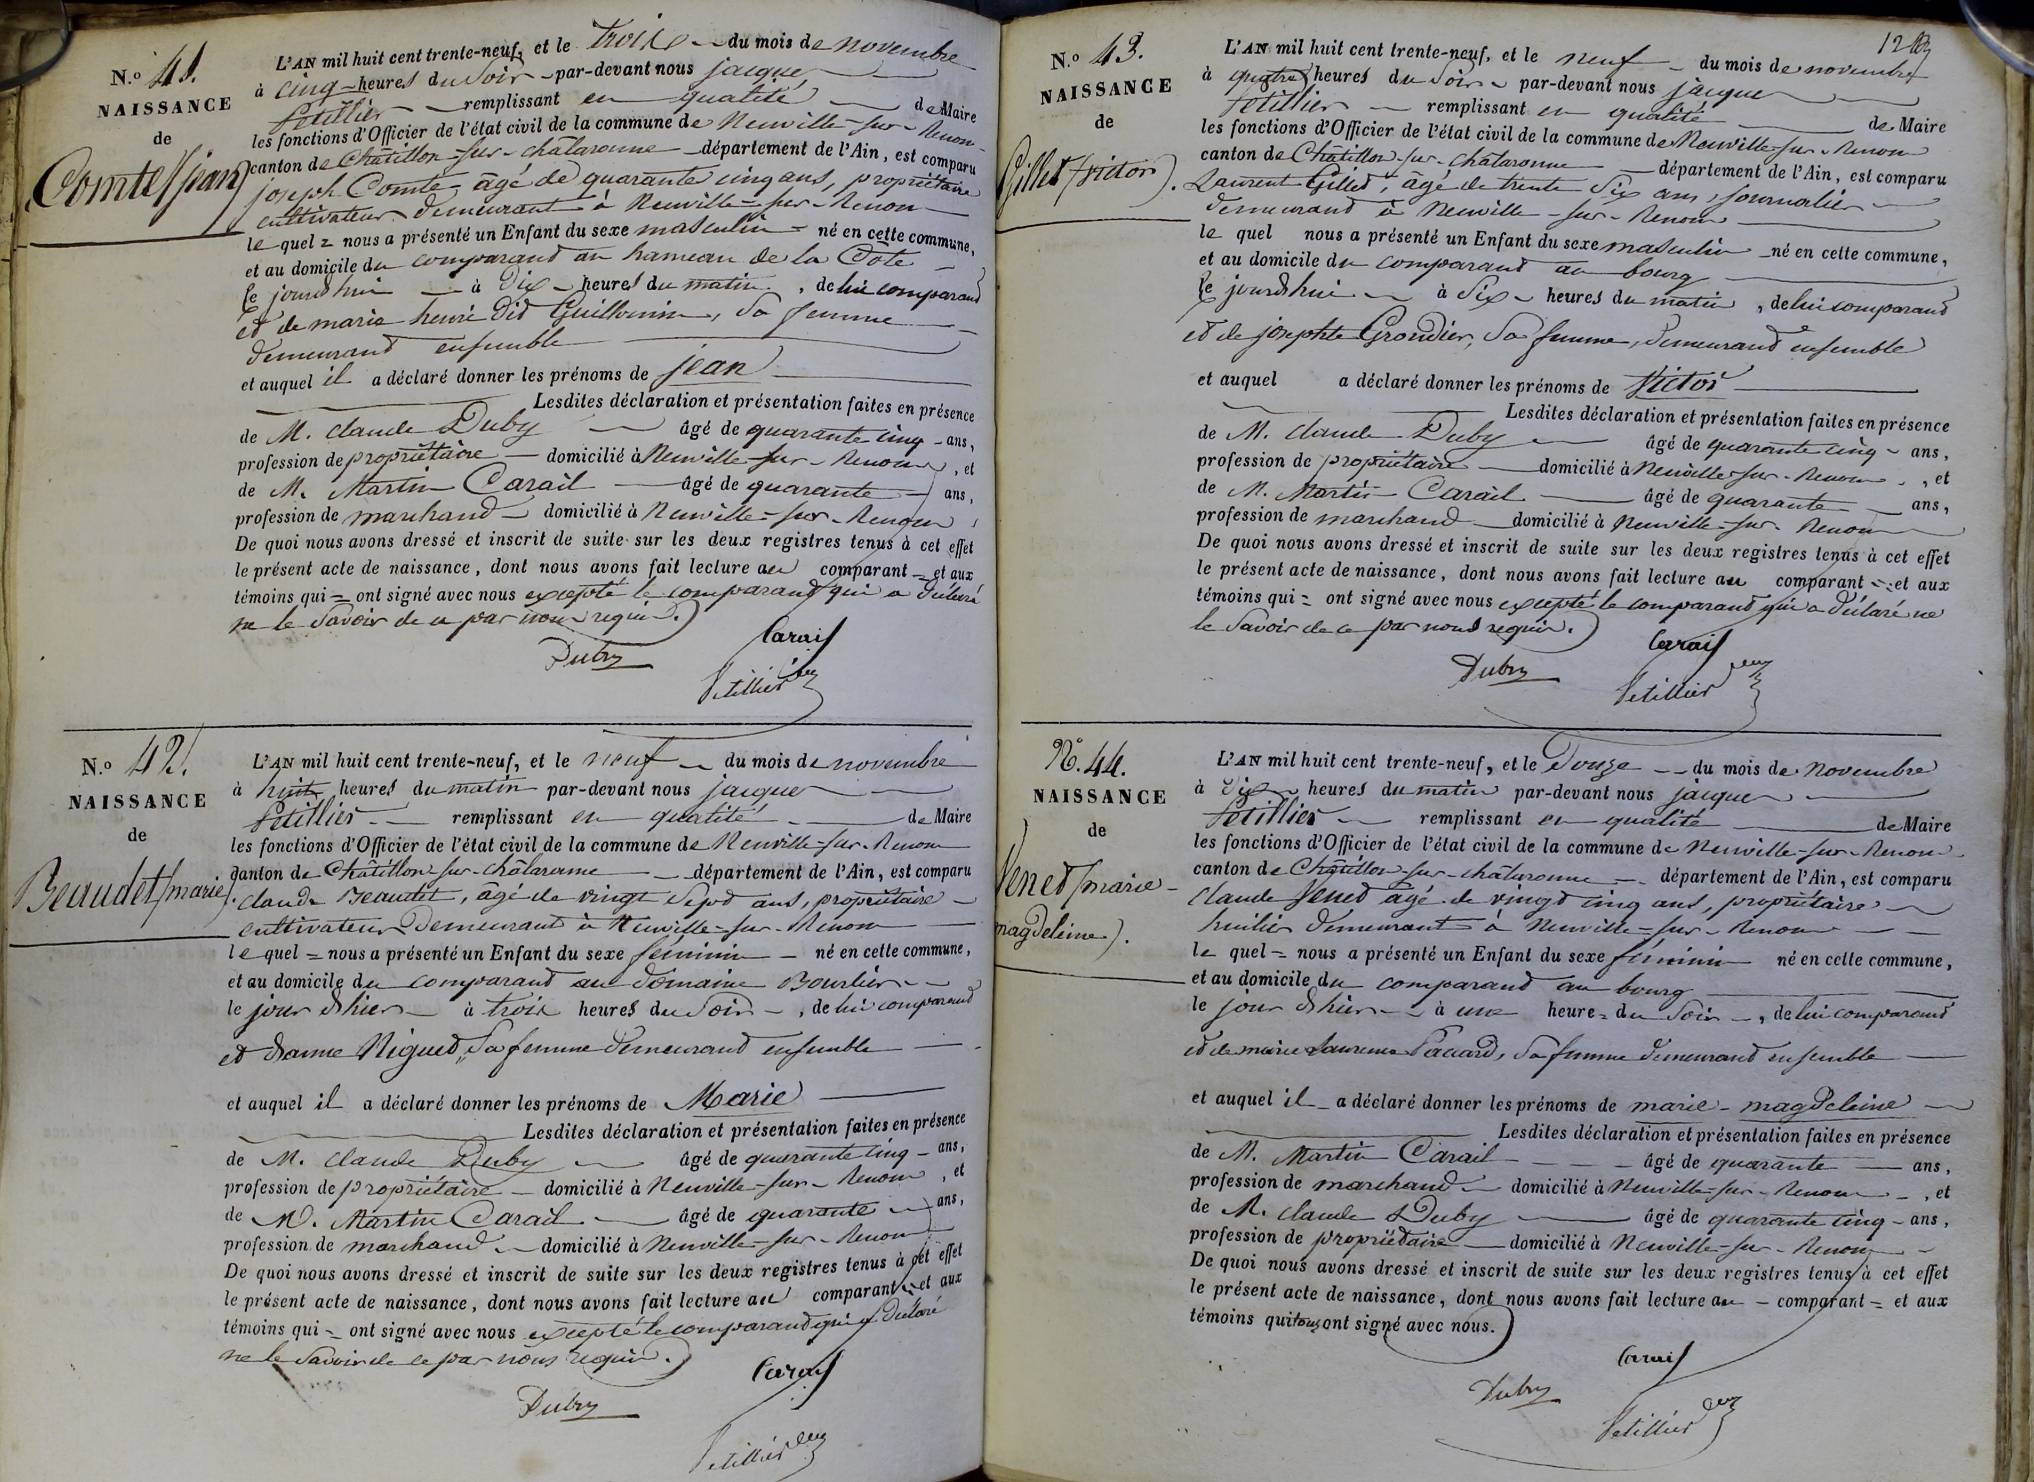 N.o 41.
NAISSANCE
de
Comte (jean)
L'AN mil huit cent trente-neuf, et le trois du mois de novembre
à cinq heures du Soir par-devant nous jacque
Petillier remplissant en qualité de Maire
les fonctions d'Officier de l'état civil de la commune de Neuville-sur-Renon
canton de Châtillon-sur-chalaronne département de l'Ain, est comparu
joseph Comte, âgé de quarante cinq ans, propriétaire
cultivateur demeurant à Neuville-sur-Renon
le quel = nous a présenté un Enfant du sexe masculin = né en cette commune,
et au domicile du comparand au hameau de la Côte
ce jourd'hui à Dix heures du matin, de lui comparand
et de marie henri dit Guillomin, Sa femme
demeurand ensemble
et auquel il a déclaré donner les prénoms de jean
Lesdites déclaration et présentation faites en présence
de M. claude Duby âgé de quarante cinq ans,
profession de propriétaire domicilié à Neuville-sur-Renon, et
de M. Martin Carail âgé de quarante ans,
profession de marchand domicilié à Neuville-sur-Renon,
De quoi nous avons dressé et inscrit de suite sur les deux registres tenus à cet effet
le présent acte de naissance, dont nous avons fait lecture au comparant = et aux
témoins qui = ont signé avec nous excepté le comparand qui a déclaré
ne le Savoir de ce par nous requis.
Carail
Duby
Petillier
N.o 42.
NAISSANCE
de
Beaudet (marie).
L'AN mil huit cent trente-neuf, et le neuf du mois de novembre
à huit heures du matin par-devant nous jacque
Petillier remplissant en qualité de Maire
les fonctions d'Officier de l'état civil de la commune de Neuville-sur-Renon
canton de Châtillon-sur-chalaronne département de l'Ain, est comparu
claude Beaudet, âgé de vingt Sept ans, propriétaire
cultivateur Demeurant à Neuville-sur-Renon
le quel = nous a présenté un Enfant du sexe féminin né en cette commune,
et au domicile du comparand au domaine Bourlier
le jour d'hier à trois heures du Soir, de lui comparand
et d'anne Niguet, Sa femme demeurand ensemble
et auquel il a déclaré donner les prénoms de Marie
Lesdites déclaration et présentation faites en présence
de M. claude Duby âgé de quarante cinq ans,
profession de propriétaire domicilié à Neuville-sur-Renon, et
de M. Martin Carail âgé de quarante ans,
profession de marchand domicilié à Neuville-sur-Renon
De quoi nous avons dressé et inscrit de suite sur les deux registres tenus à cet effet
le présent acte de naissance, dont nous avons fait lecture au comparant = et aux
témoins qui = ont signé avec nous excepté le comparand qui a déclaré
ne le Savoir de ce par nous requis.
Carail
Duby
Petillier
N.o 43.
NAISSANCE
de
Gillet (victor).
L'AN mil huit cent trente-neuf, et le neuf du mois de novembre
à quatre heures du Soir par-devant nous jacque
Petillier remplissant en qualité de Maire
les fonctions d'Officier de l'état civil de la commune de Neuville-sur-Renon
canton de Châtillon-sur-chalaronne département de l'Ain, est comparu
Laurent Gillet, âgé de trente Six ans, journalier
demeurand à Neuville-sur-Renon
le quel nous a présenté un Enfant du sexe masculin né en cette commune,
et au domicile du comparand au bourg
ce jourd'hui à Six heures du matin, de lui comparand
et de josephte Grondier, Sa femme, demeurand ensemble
et auquel a déclaré donner les prénoms de Victor
Lesdites déclaration et présentation faites en présence
de M. claude Duby âgé de quarante cinq ans,
profession de propriétaire domicilié à Neuville-sur-Renon, et
de M. Martin Carail âgé de quarante ans,
profession de marchand domicilié à Neuville-sur-Renon
De quoi nous avons dressé et inscrit de suite sur les deux registres tenus à cet effet
le présent acte de naissance, dont nous avons fait lecture au comparant = et aux
témoins qui = ont signé avec nous excepté le comparand qui a déclaré ne
le Savoir de ce par nous requis.
Carail
Duby
Petillier
N.o 44.
NAISSANCE
de
Venet (marie-
magdeleine).
L'AN mil huit cent trente-neuf, et le Douze du mois de novembre
à Dix heures du matin par-devant nous jacque
Petillier remplissant en qualité de Maire
les fonctions d'Officier de l'état civil de la commune de Neuville-sur-Renon
canton de Châtillon-sur-chalaronne département de l'Ain, est comparu
claude Venet âgé de vingt cinq ans, propriétaire
huilier demeurant à Neuville-sur-Renon
le quel = nous a présenté un Enfant du sexe féminin né en cette commune,
et au domicile du comparand au bourg
le jour d'hier à une heure = du Soir, de lui comparand
et de marie Laurence Paccard, Sa femme demeurand ensemble
et auquel il a déclaré donner les prénoms de marie-magdeleine
Lesdites déclaration et présentation faites en présence
de M. Martin Carail âgé de quarante ans,
profession de marchand domicilié à Neuville-sur-Renon, et
de M. claude Duby âgé de quarante cinq ans,
profession de propriétaire domicilié à Neuville-sur-Renon
De quoi nous avons dressé et inscrit de suite sur les deux registres tenus à cet effet
le présent acte de naissance, dont nous avons fait lecture au comparant = et aux
témoins qui tous ont signé avec nous.
Carail
Duby
Petillier